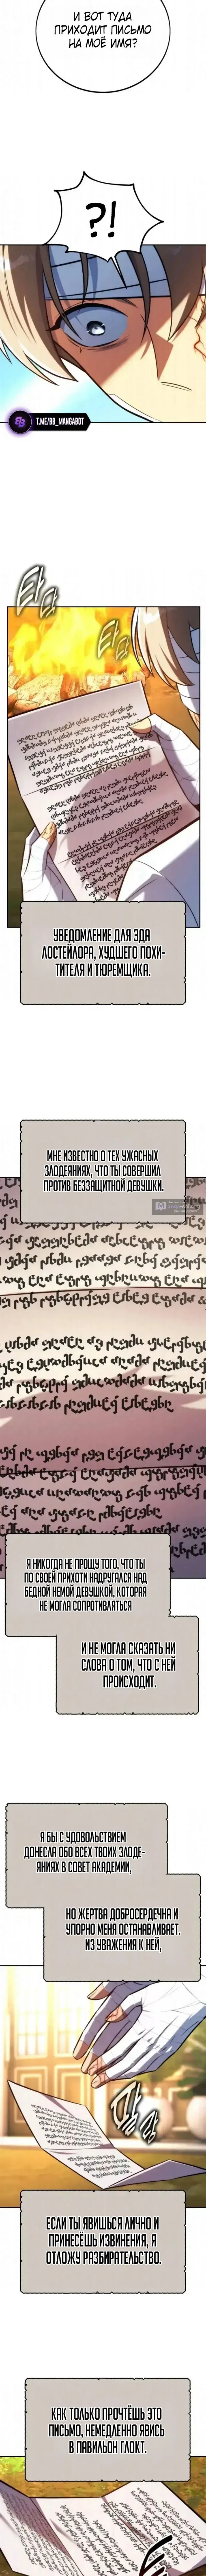 И ВОТ ТУДА
ПРИХОДИТ ПИСЬМО
НА МОЁ ИМЯ?
?!
T.ME/BB_MANGABOT
УВЕДОМЛЕНИЕ ДЛЯ ЭДА
ЛОСТЕЙЛОРА, ХУДШЕГО ПОХИ-
ТИТЕЛЯ И ТЮРЕМЩИКА.
МНЕ ИЗВЕСТНО О ТЕХ УЖАСНЫХ
ЗЛОДЕЯНИЯХ, ЧТО ТЫ СОВЕРШИЛ
ПРОТИВ БЕЗЗАЩИТНОЙ ДЕВУШКИ.
Я НИКОГДА НЕ ПРОЩУ ТОГО, ЧТО ТЫ
ПО СВОЕЙ ПРИХОТИ НАДРУГАЛСЯ НАД
БЕДНОЙ НЕМОЙ ДЕВУШКОЙ, КОТОРАЯ
НЕ МОГЛА СОПРОТИВЛЯТЬСЯ
И НЕ МОГЛА СКАЗАТЬ НИ
СЛОВА О ТОМ, ЧТО С НЕЙ
ПРОИСХОДИТ.
Я БЫ С УДОВОЛЬСТВИЕМ
ДОНЕСЛА ОБО ВСЕХ ТВОИХ ЗЛОДЕ-
ЯНИЯХ В СОВЕТ АКАДЕМИИ,
НО ЖЕРТВА ДОБРОСЕРДЕЧНА И
УПОРНО МЕНЯ ОСТАНАВЛИВАЕТ.
ИЗ УВАЖЕНИЯ К НЕЙ,
ЕСЛИ ТЫ ЯВИШЬСЯ ЛИЧНО И
ПРИНЕСЁШЬ ИЗВИНЕНИЯ, Я
ОТЛОЖУ РАЗБИРАТЕЛЬСТВО.
КАК ТОЛЬКО ПРОЧТЁШЬ ЭТО
ПИСЬМО, НЕМЕДЛЕННО ЯВИСЬ
В ПАВИЛЬОН ГЛОКТ.